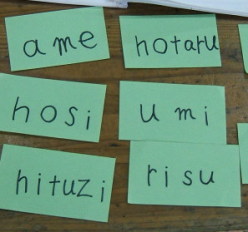 ame
hotaru
hosi
umi
hituzi
risu